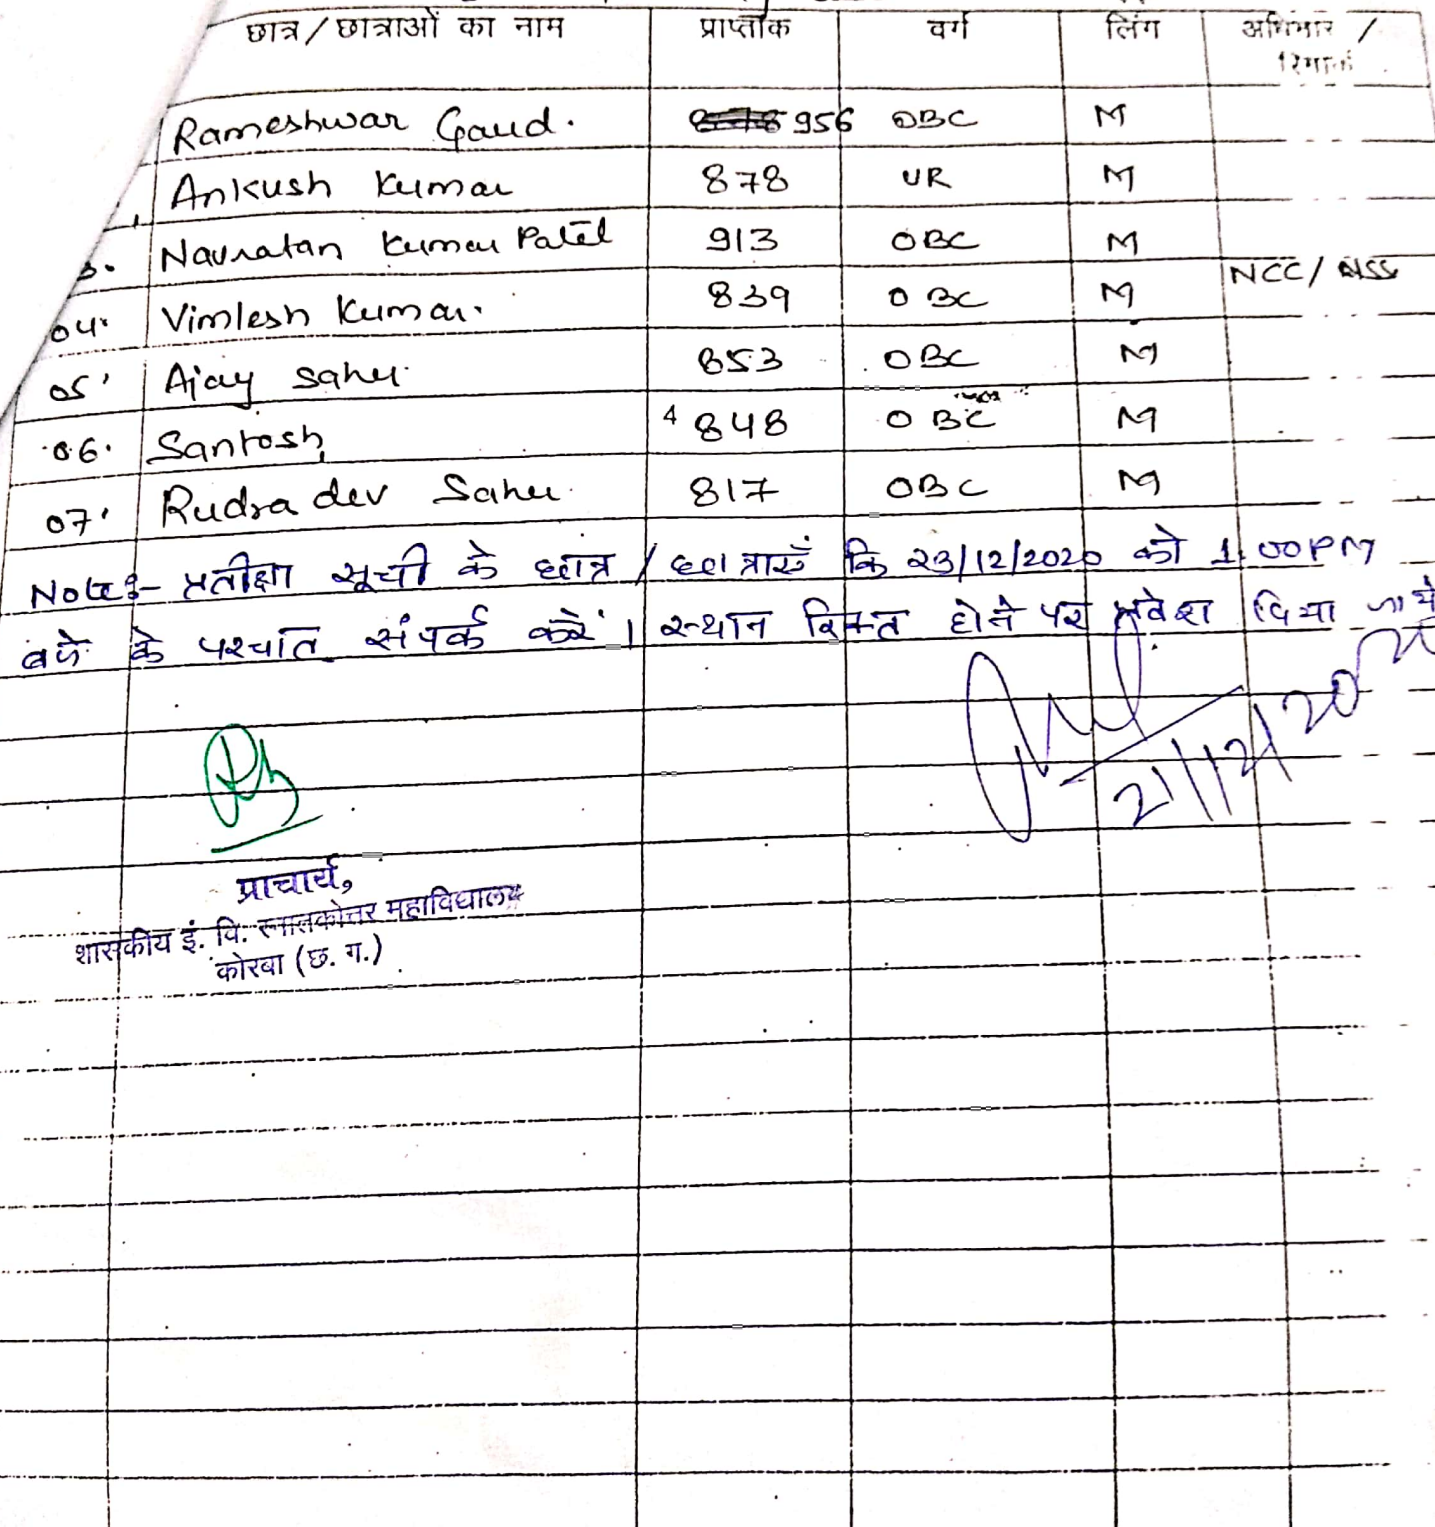 छात्र / छात्राओं का नाम प्राप्तांक वर्ग लिंग अधिभार /
रिमार्क
Rameshwar Gaud. 956 OBC M
Ankush Kumar 878 UR M
3. Navratan Kumar Patel 913 OBC M
04. Vimlesh Kumar. 839 OBC M NCC/NSS
05' Ajay Sahu. 853 OBC M
06. Santosh 4 848 OBC M
07' Rudra dev Sahu. 817 OBC M
Note:- प्रतीक्षा सूची के छात्र / छात्राएँ कि 23/12/2020 को 1:00PM
बजे के पश्चात संपर्क करें। स्थान रिक्त होने पर प्रवेश दिया जाये
21/12/2020
प्राचार्य,
शासकीय इं. वि. स्नातकोत्तर महाविद्यालय
कोरबा (छ. ग.)